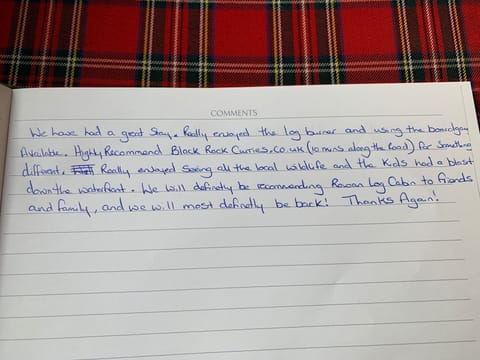 COMMENTS
We have had a great stay. Really enjoyed the log burner and using the boardgay
Available. Highly Recommend Black Rock Curries.co.uk (10 mins along the Road) for Something
different. Really enjoyed Seeing all the local wildlife and the Kids had a blast
down the waterfront. We will definetly be recommending Rowan Log Cabin to friends
and family, and we will most definetly be back! Thanks Again!